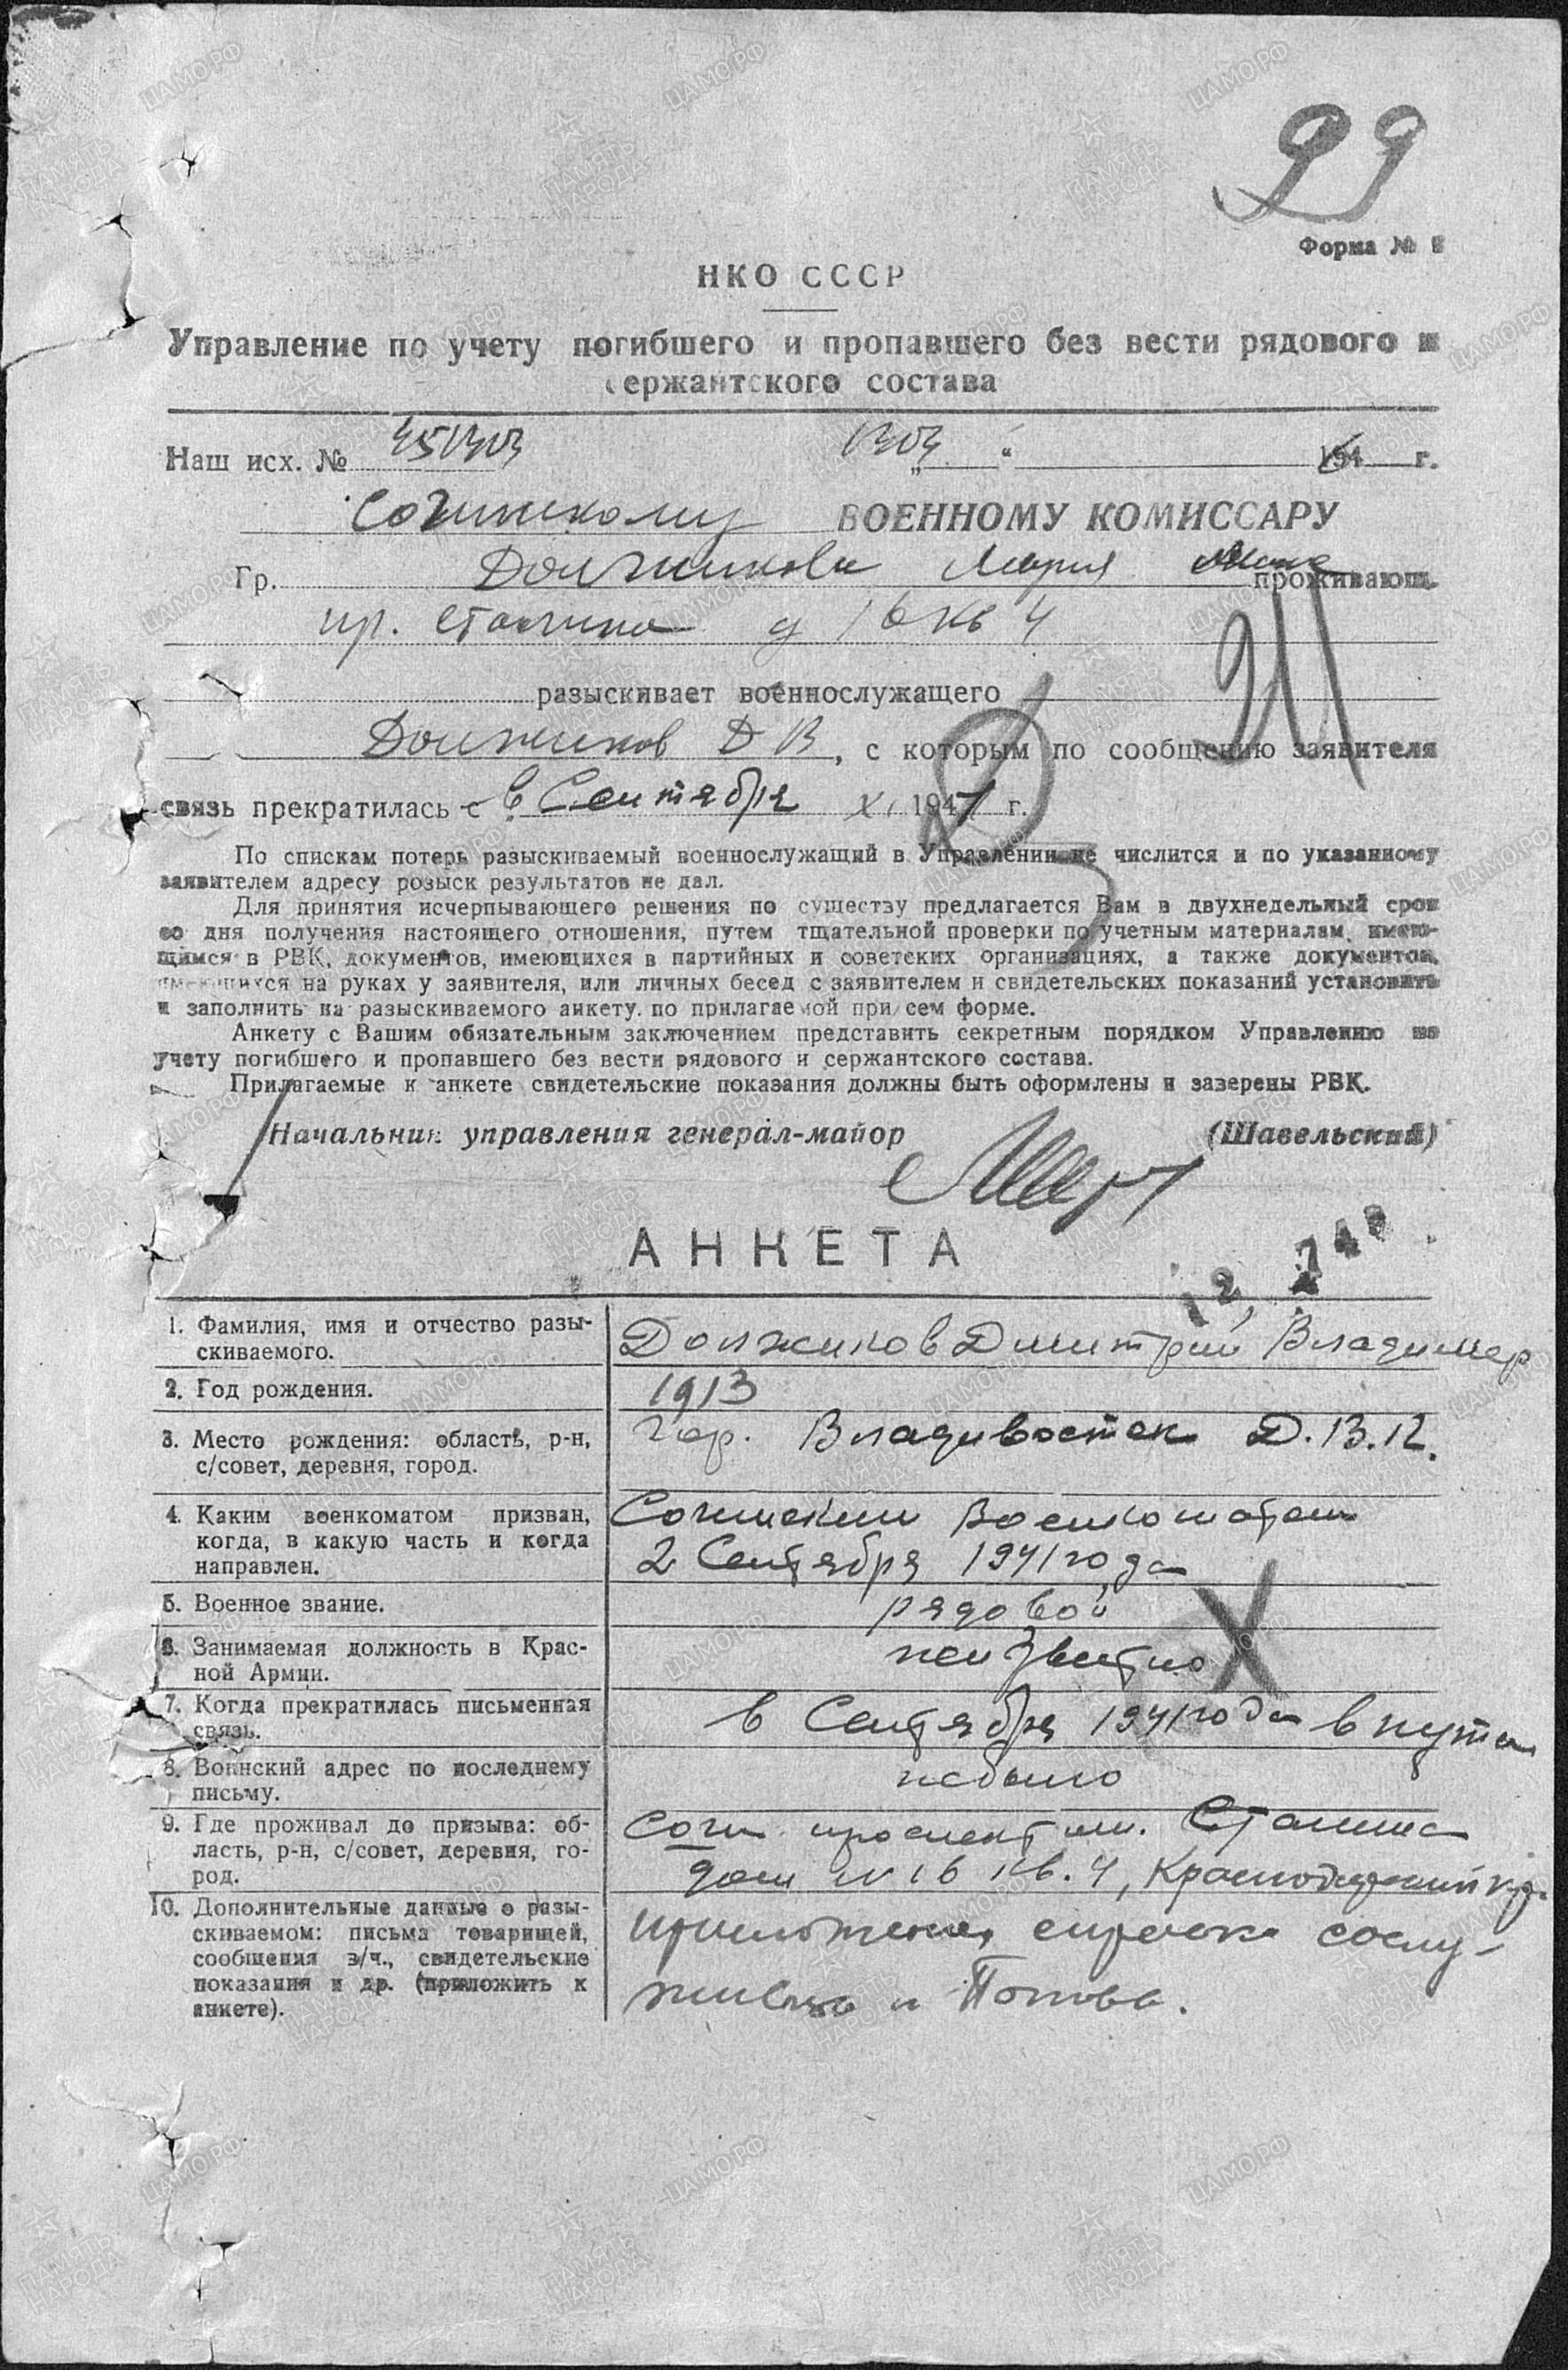 99
Форма №
НКО СССР
Управление по учету погибшего и пропавшего без вести рядового и
сержантского состава
Наш исх. № 194 г.
Сочинскому ВОЕННОМУ КОМИССАРУ
Гр. Должикова Мария проживающ.
пр. Сталина д 16 кв 4
разыскивает военнослужащего
Должиков Д В, с которым по сообщению заявителя
связь прекратилась с в Сентября 1941 г.
По спискам потерь разыскиваемый военнослужащий в Управлении не числится и по указанному
заявителем адресу розыск результатов не дал.
Для принятия исчерпывающего решения по существу предлагается Вам в двухнедельный срок
со дня получения настоящего отношения, путем тщательной проверки по учетным материалам, имею-
щимся в РВК, документов, имеющихся в партийных и советских организациях, а также документов,
имеющихся на руках у заявителя, или личных бесед с заявителем и свидетельских показаний установить
и заполнить на разыскиваемого анкету. по прилагаемой при сем форме.
Анкету с Вашим обязательным заключением представить секретным порядком Управлению по
учету погибшего и пропавшего без вести рядового и сержантского состава.
Прилагаемые к анкете свидетельские показания должны быть оформлены и заверены РВК.
Начальник управления генерал-майор (Шавельский)
АНКЕТА
1. Фамилия, имя и отчество разы-
скиваемого.
Должиков Дмитрий Владимир
2. Год рождения.
1913
3. Место рождения: область, р-н,
с/совет, деревня, город.
Гор. Владивосток Д.В.К.
4. Каким военкоматом призван,
когда, в какую часть и когда
направлен.
Сочинским Военкоматом
2 Сентября 1941 года
5. Военное звание.
рядовой
6. Занимаемая должность в Крас-
ной Армии.
неизвестно
7. Когда прекратилась письменная
связь.
в Сентября 1941 года в пути
8. Воинский адрес по последнему
письму.
небыло
9. Где проживал до призыва: об-
ласть, р-н, с/совет, деревня, го-
род.
Сочи проспект им. Сталина
дом № 16 кв. 4, Краснодарский кр.
10. Дополнительные данные о разы-
скиваемом: письма товарищей,
сообщения в/ч., свидетельские
показания и др. (приложить к
анкете).
приложена справка сослу-
живца Попова.